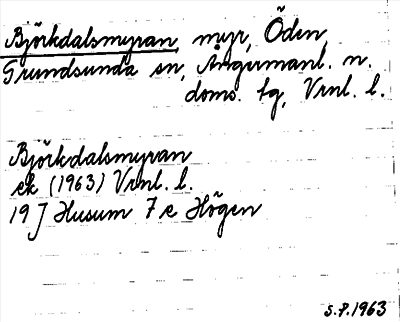 Björkdalsmyran, myr, Öden
Grundsunda sn, Ångermanl. n.
doms. tg, Vrnl. l.
Björkdalsmyran
ek (1963) Vrnl. l.
19 J Husum 7 e Högen
S.P.1963